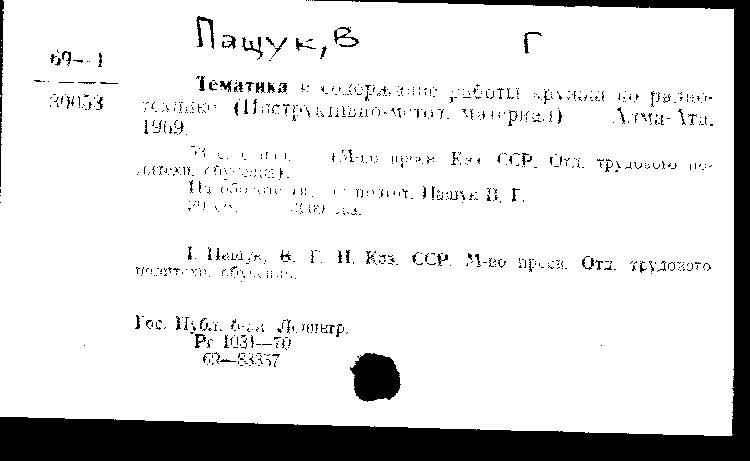 Пащук, В Г
69-1
30053
Тематика и содержание работы кружка по радио-
технике (Инструктивно-метод. материал) Алма-Ата,
1969.
(М-во просв. Каз. ССР. Отд. трудового по-
литехн. обучения).
На обороте тит. л. подгот. Пащук В. Г.
I. Пащук, В. Г. II. Каз. ССР. М-во просв. Отд. трудового
политехн. обучения.
Гос. Публ. б-ка Ленингр.
Рг 1031—70
69—83357